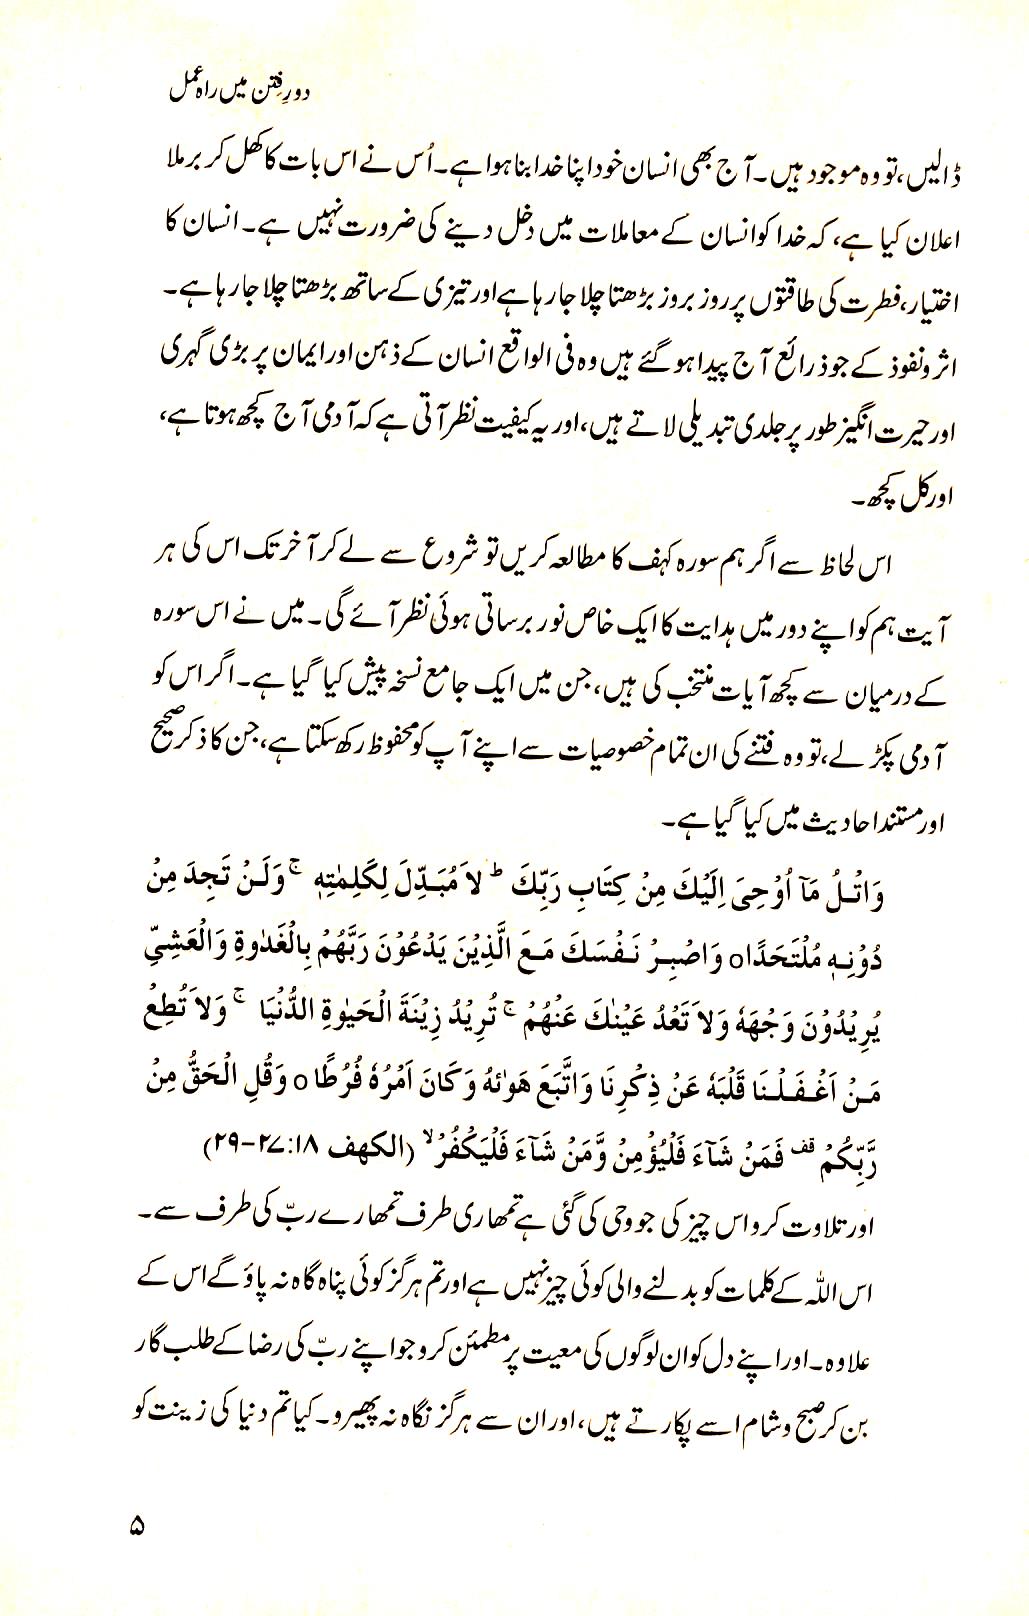 دورِ فتن میں راہ عمل
ڈالیں، تو وہ موجود ہیں۔ آج بھی انسان خود اپنا خدا بنا ہوا ہے۔ اُس نے اس بات کا کھل کر برملا
اعلان کیا ہے، کہ خدا کو انسان کے معاملات میں دخل دینے کی ضرورت نہیں ہے۔ انسان کا
اختیار، فطرت کی طاقتوں پر روز بروز بڑھتا چلا جا رہا ہے اور تیزی کے ساتھ بڑھتا چلا جا رہا ہے۔
اثر و نفوذ کے جو ذرائع آج پیدا ہو گئے ہیں وہ فی الواقع انسان کے ذہن اور ایمان پر بڑی گہری
اور حیرت انگیز طور پر جلدی تبدیلی لاتے ہیں، اور یہ کیفیت نظر آتی ہے کہ آدمی آج کچھ ہوتا ہے،
اور کل کچھ۔
اس لحاظ سے اگر ہم سورہ کہف کا مطالعہ کریں تو شروع سے لے کر آخر تک اس کی ہر
آیت ہم کو اپنے دور میں ہدایت کا ایک خاص نور برساتی ہوئی نظر آئے گی۔ میں نے اس سورہ
کے درمیان سے کچھ آیات منتخب کی ہیں، جن میں ایک جامع نسخہ پیش کیا گیا ہے۔ اگر اس کو
آدمی پکڑ لے، تو وہ فتنے کی ان تمام خصوصیات سے اپنے آپ کو محفوظ رکھ سکتا ہے، جن کا ذکر صحیح
اور مستند احادیث میں کیا گیا ہے۔
وَاتْلُ مَآ اُوْحِیَ اِلَیْكَ مِنْ كِتَابِ رَبِّكَ ؕ لاَ مُبَدِّلَ لِكَلِمٰتِهٖ ۚ وَلَنْ تَجِدَ مِنْ
دُوْنِهٖ مُلْتَحَدًا o وَاصْبِرْ نَفْسَكَ مَعَ الَّذِیْنَ یَدْعُوْنَ رَبَّهُمْ بِالْغَدٰوةِ وَالْعَشِیِّ
یُرِیْدُوْنَ وَجْهَهٗ وَلاَ تَعْدُ عَیْنٰكَ عَنْهُمْ ۚ تُرِیْدُ زِیْنَةَ الْحَیٰوةِ الدُّنْیَا ۚ وَلاَ تُطِعْ
مَنْ اَغْفَلْنَا قَلْبَهٗ عَنْ ذِكْرِنَا وَاتَّبَعَ هَوٰىهُ وَكَانَ اَمْرُهٗ فُرُطًا o وَقُلِ الْحَقُّ مِنْ
رَّبِّكُمْ قف فَمَنْ شَآءَ فَلْیُؤْمِنْ وَّمَنْ شَآءَ فَلْیَكْفُرْ ۙ (الكهف ۱۸:۲۷-۲۹)
اور تلاوت کرو اس چیز کی جو وحی کی گئی ہے تمھاری طرف تمھارے ربّ کی طرف سے۔
اس اللہ کے کلمات کو بدلنے والی کوئی چیز نہیں ہے اور تم ہرگز کوئی پناہ گاہ نہ پاؤ گے اس کے
علاوہ۔ اور اپنے دل کو ان لوگوں کی معیت پر مطمئن کرو جو اپنے ربّ کی رضا کے طلب گار
بن کر صبح و شام اسے پکارتے ہیں، اور ان سے ہرگز نگاہ نہ پھیرو۔ کیا تم دنیا کی زینت کو
۵